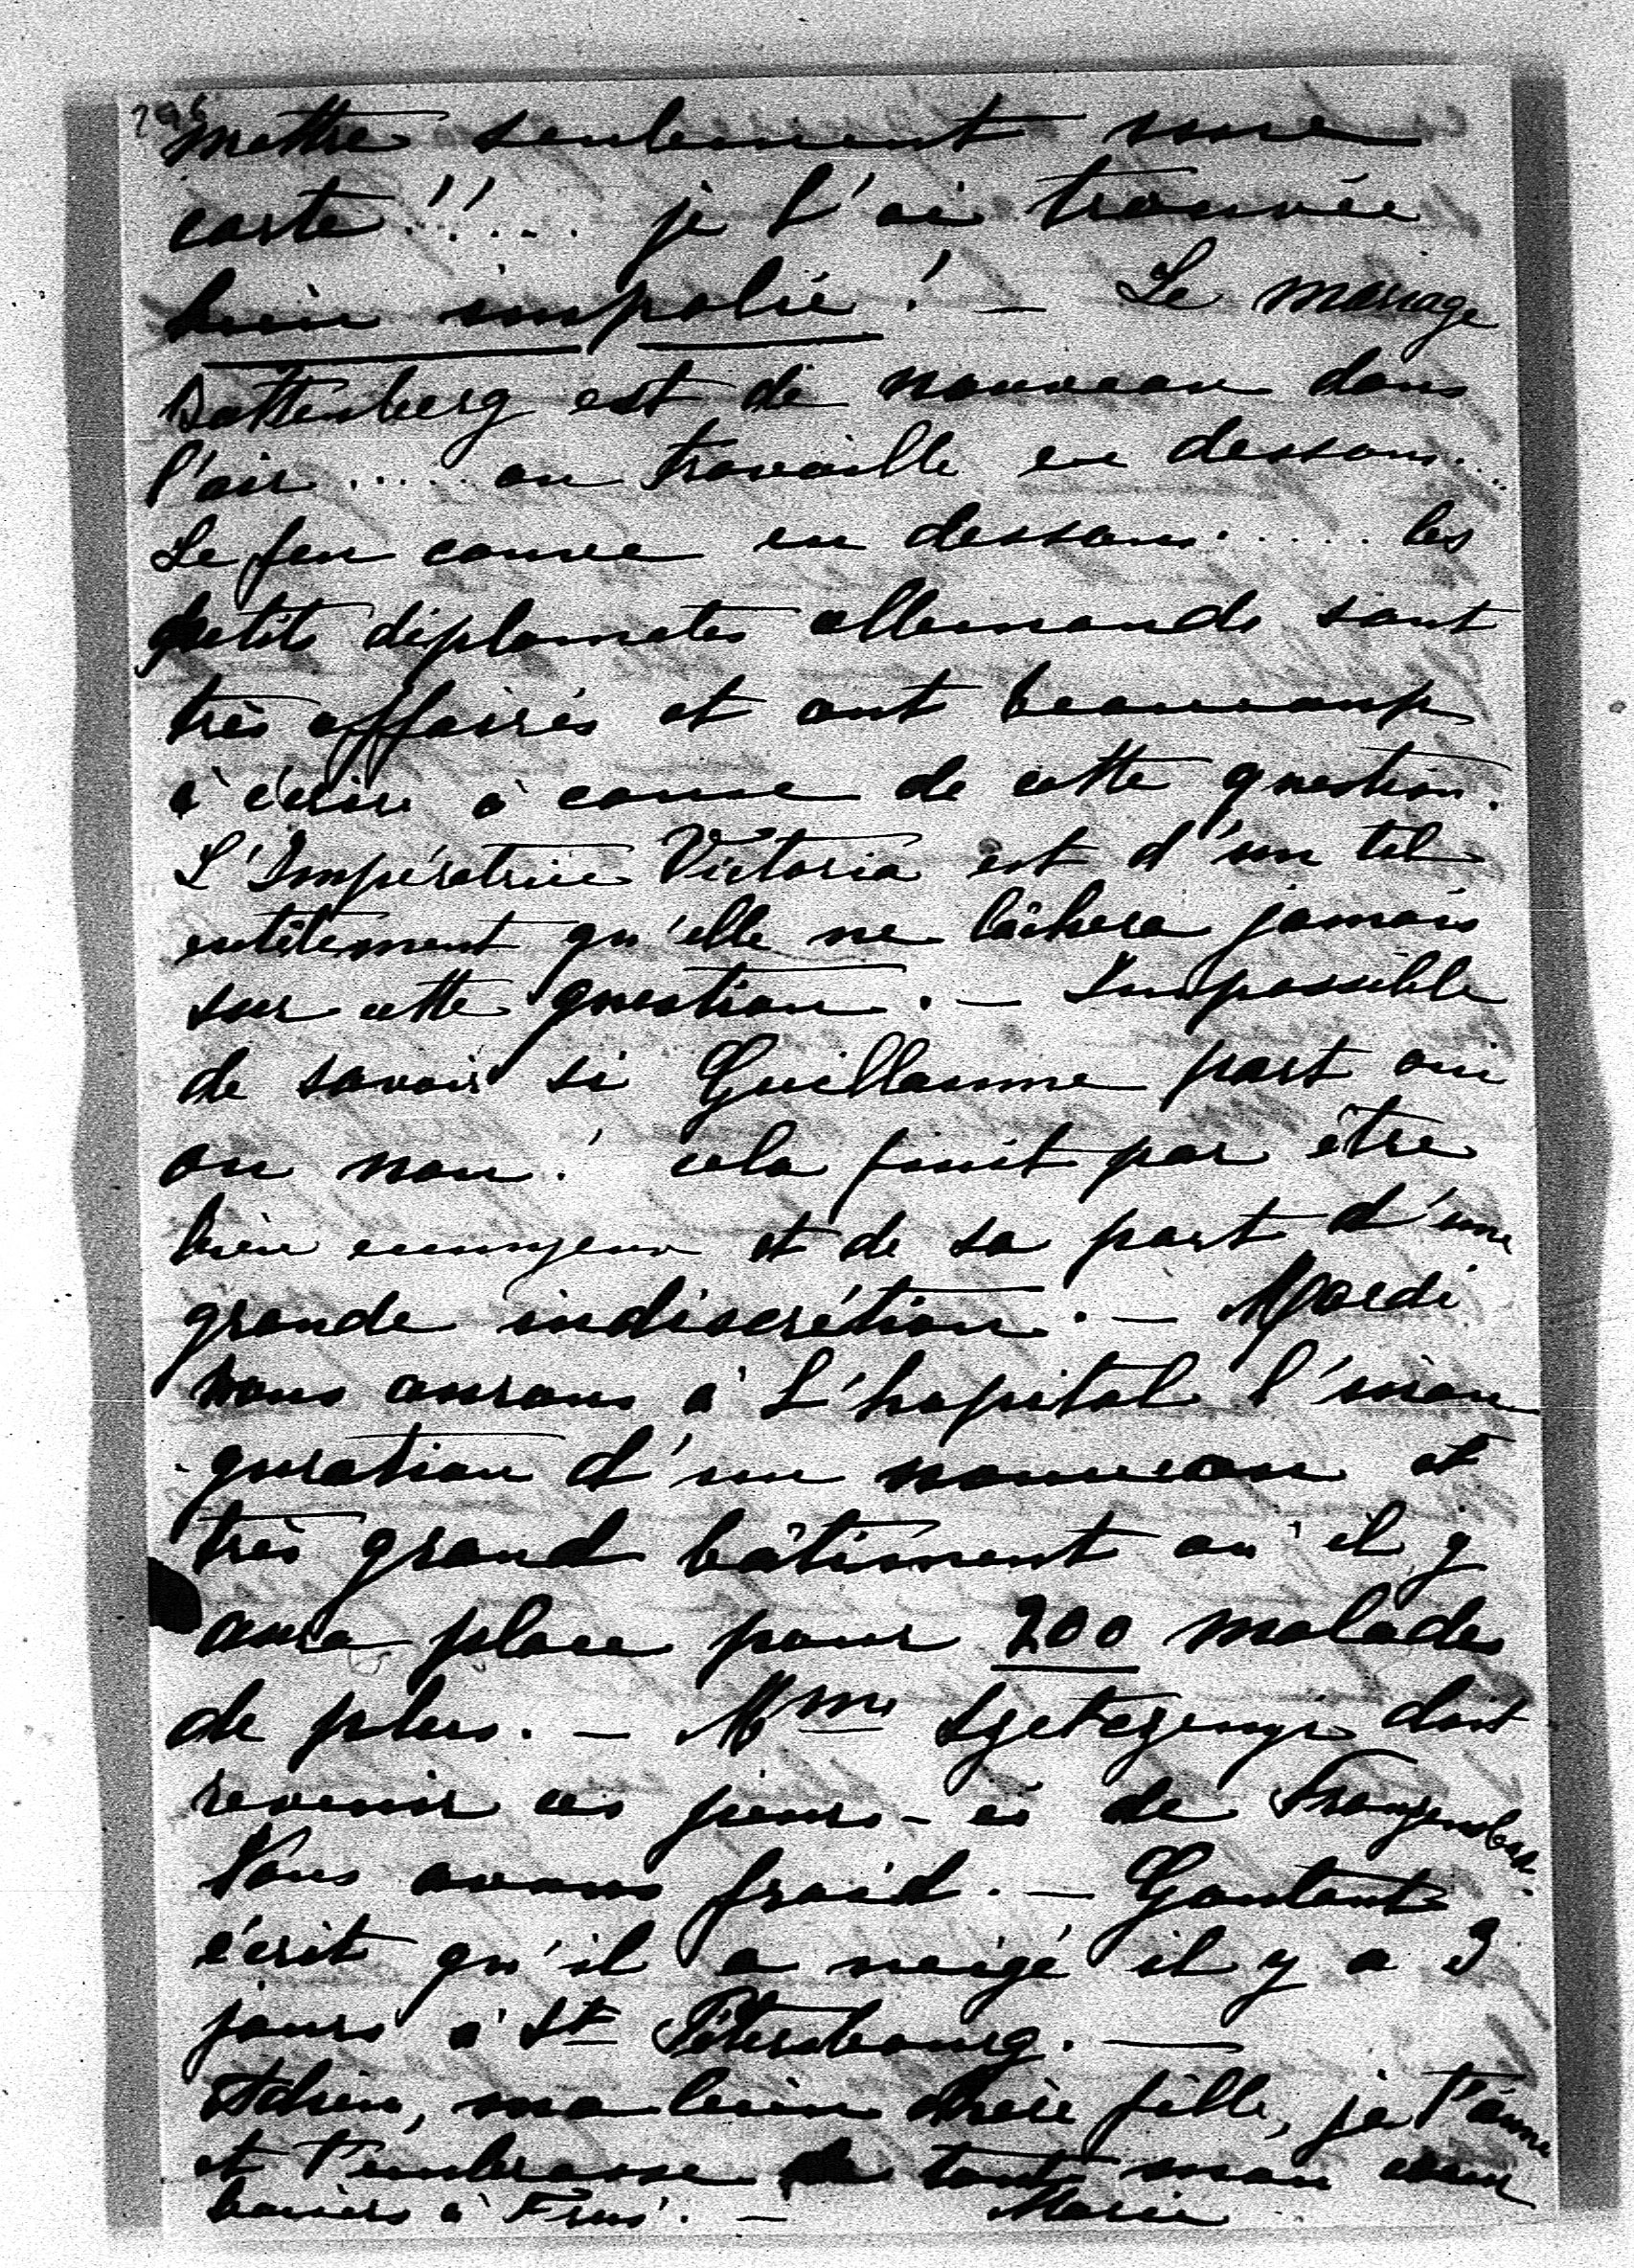 mettre seulement une
carte!!.... je l'ai trouvée
bien impolie! — Le mariage
Battenberg est de nouveau dans
l'air..... on travaille en dessous...
Le feu couve en dessous..... les
petits diplomates allemands sont
très affairés et ont beaucoup
à écrire à cause de cette question.
L'Impératrice Victoria est d'un tel
entêtement qu'elle ne lâchera jamais
sur cette question. — Impossible
de savoir si Guillaume part oui
ou non! cela finit par être
bien ennuyeux et de sa part d'une
grande indiscrétion. — Mardi
nous aurons à L'hopital l'inau
guration d'un nouveau et
très grand bâtiment où il y
aura place pour 200 malades
de plus. — Mme Szetczenyi doit
revenir ces jours-ci de Franzensbad.
Nous avons froid. — Gontaut
écrit qu'il a neigé il y a 3
jours à St Pétersbourg. —
Adieu, ma bien chère fille, je t'aime
et t'embrasse de tout mon cœur
baisers à Frus'. — Marie